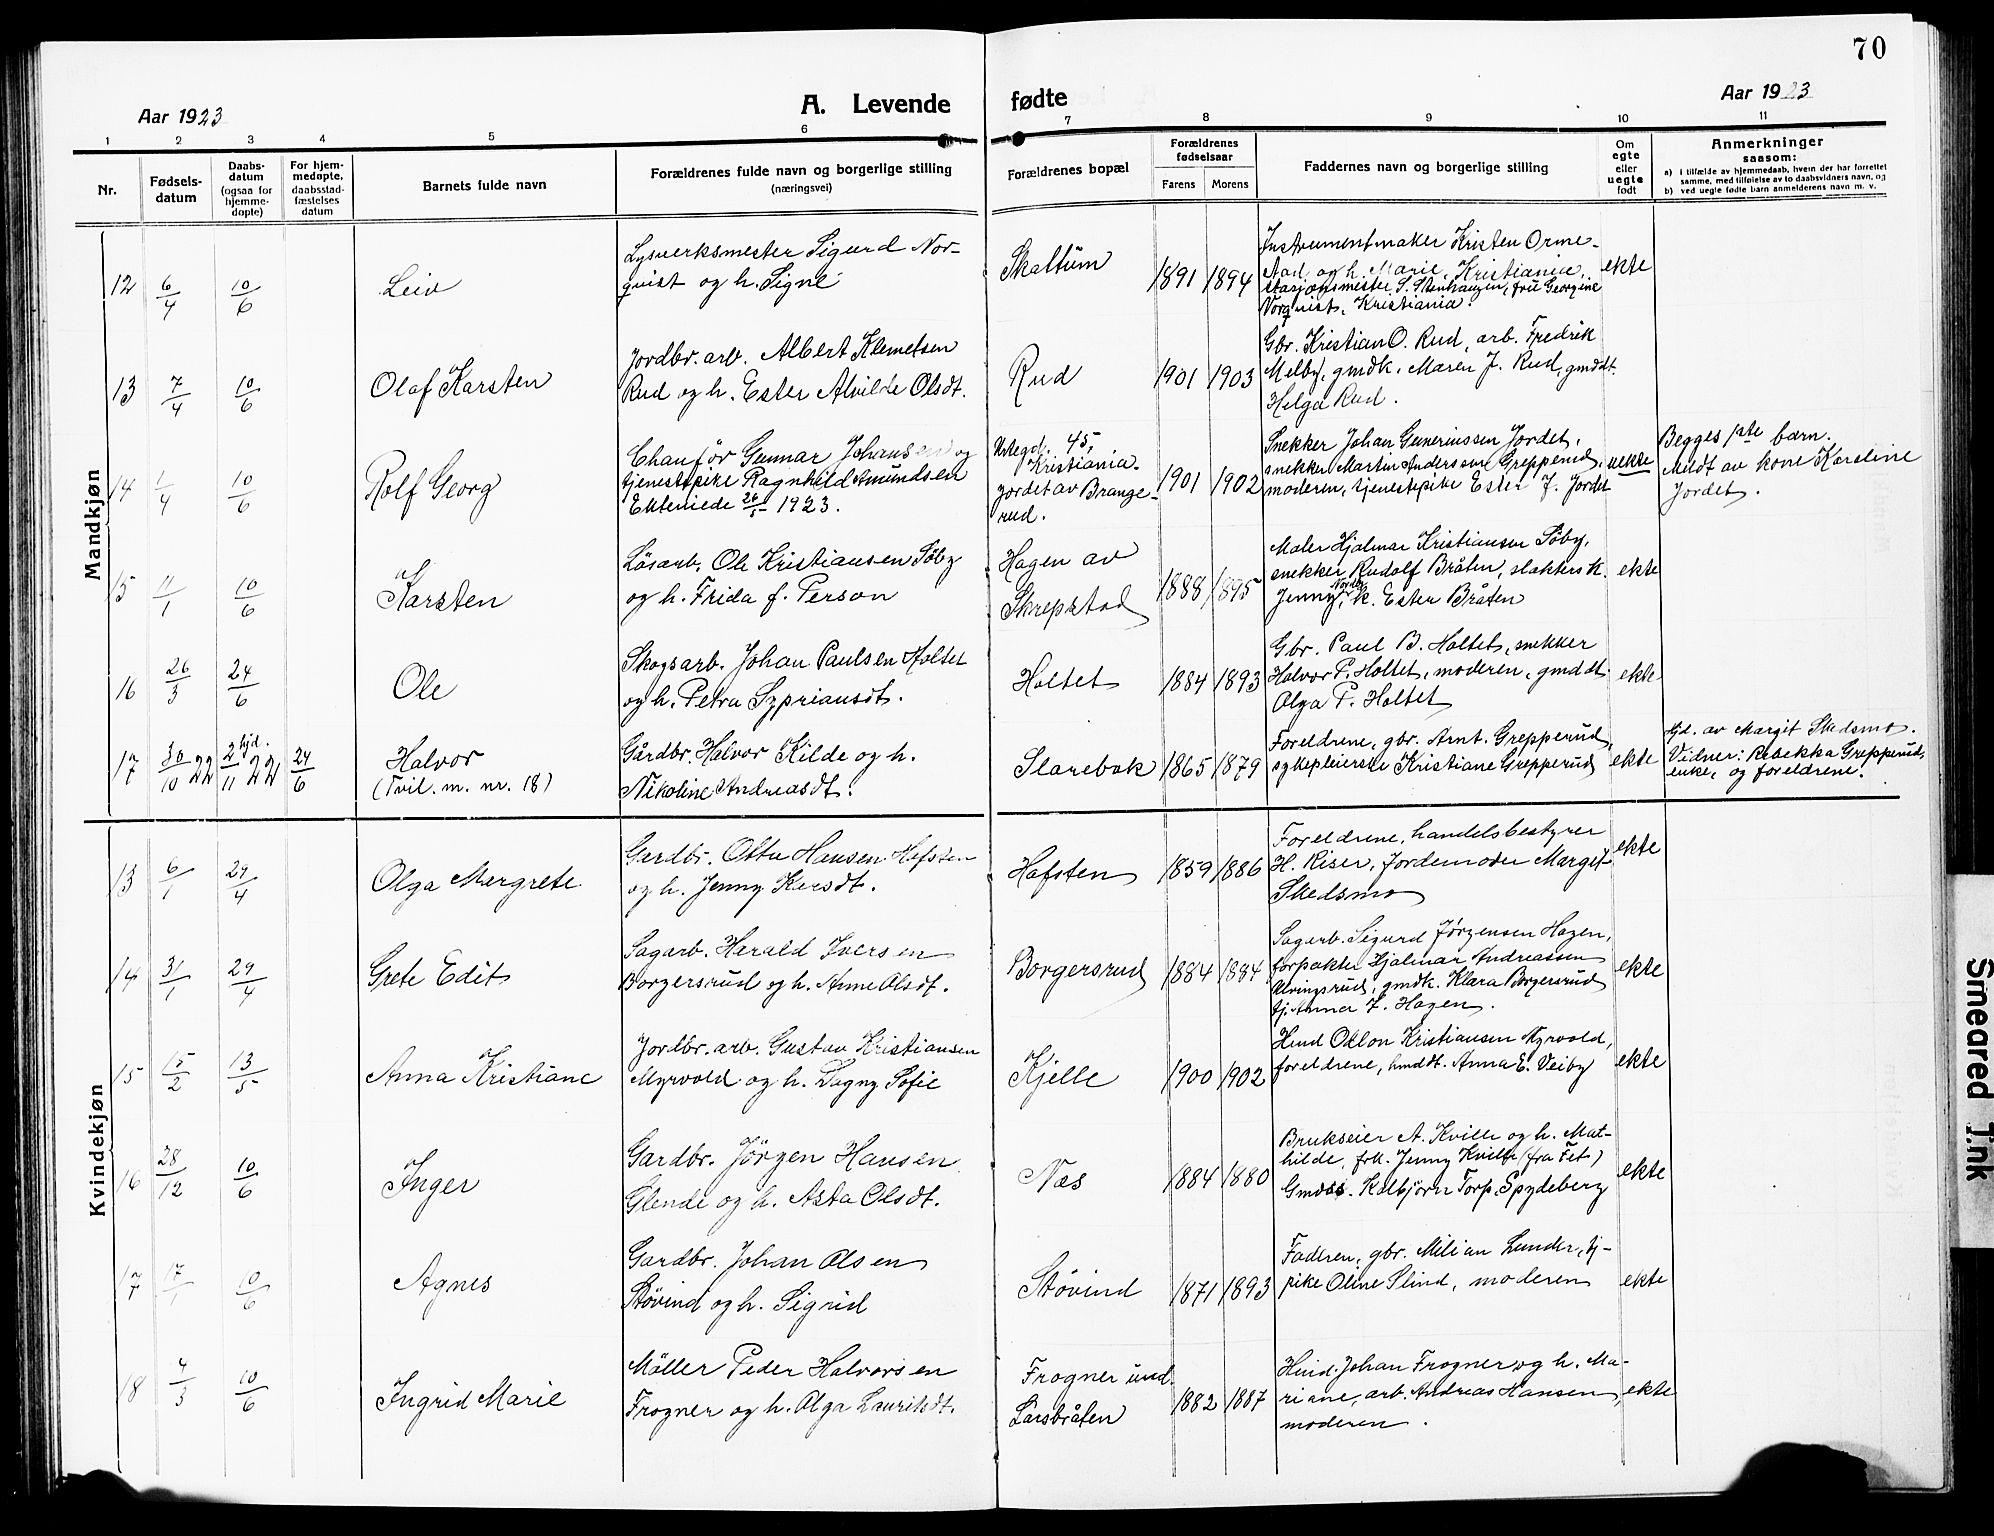 70
Aar 1923
A. Levende fødte
Aar 1923
1 2 3 4 5 6 7 8 9 10 11
Nr.
Fødsels-
datum
Daabs-
datum
(ogsaa for
hjemme-
døpte)
For hjem-
medøpte,
daabsstad-
fæstelses
datum
Barnets fulde navn
Forældrenes fulde navn og borgerlige stilling
(næringsvei)
Forældrenes bopæl
Forældrenes
fødselsaar
Farens Morens
Faddernes navn og borgerlige stilling
Om
egte
eller
uegte
født
Anmerkninger
saasom:
a) i tilfælde av hjemmedaab, hvem der har forrettet
samme, med tilføielse av to daabsvidners navn, og
b) ved uegte fødte barn anmelderens navn m. v.
Mandkjøn
12 6/4 10/6 Leiv
Lysverksmester Sigurd Nor-
quist og h. Signe
Skattum 1891 1894
Instrumentmaker Kristen Orme-
stad og h. Marie, Kristiania,
stasjonsmester S. Stenhaugen, fru Georgine
Norquist, Kristiania.
ekte
13 7/4 10/6 Olaf Karsten
Jordbr. arb. Albert Klemetsen
Rud og h. Ester Alvilde Olsdt.
Rud 1901 1903
Gbr. Kristian O. Rud, arb. Fredrik
Melby, gmdk. Maren J. Rud, gmddt.
Helga Rud.
14 1/4 10/6 Rolf Georg
Chauffør Gunnar Johansen og
tjenestepike Ragnhild Amundsen
Ekteviede 26/5 1923.
Urtegd. 45,
Kristiania.
Jordet av Brange-
rud.
1901 1902
Snekker Johan Gunerinssen Jordet,
snekker Martin Anderssen Grepperud,
moderen, tjenestepike Ester J. Jordet
uekte
Begges 1ste barn.
Meldt av kone Karoline
Jordet.
15 11/1 10/6 Karsten
Løsarb. Ole Kristiansen Søby
og h. Frida f. Person
Hagen av
Skrepstad
1888 1895
Maler Hjalmar Kristiansen Søby,
snekker Rudolf Bråten, slakters k.
Jenny Nordby, k. Ester Bråten
ekte
16 26/3 24/6 Ole
Skogsarb. Johan Paulsen Holtet
og h. Petra Sypriansdt.
Holtet 1884 1893
Gbr. Paul B. Holtet, snekker
Halvor P. Holtet, moderen, gmddt.
Olga P. Holtet
ekte
17 30/10 22 hjd. 2/11 22 24/6 Halvor
(Tvil. m. nr. 18)
Gårdbr. Halvor Kilde og h.
Nikoline Andreasdt.
Slorebak 1865 1879
Foreldrene, gbr. Arnt. Grepperud,
sykepleierske Kristiane Grepperud
ekte
Hjd. av Margit Skedsmo.
Vidner: Rebekka Grepperud,
enke, og foreldrene.
Kvindekjøn
13 6/1 29/4 Olga Margrete
Gardbr. Otto Hansen Hofsten
og h. Jenny Karsdt.
Hofsten 1859 1886
Foreldrene, handelsbestyrer
H. Riser, Jordemoder Margit
Skedsmo
ekte
14 31/1 29/4 Grete Edit
Sagarb. Harald Iversen
Borgersrud og h. Anne Olsdt.
Borgersrud 1884 1884
Sagarb. Sigurd Jørgensen Hagen,
forpakter Hjalmar Andreassen
Alvingsrud, gmdk. Klara Borgersrud
tj. Anna J. Hagen.
ekte
15 15/2 13/5 Anna Kristiane
Jordbr. arb. Gustav Kristiansen
Myrvold og h. Dagny Sofie
Kjelle 1900 1902
Hmd Otton Kristiansen Myrvold,
foreldrene, hmddt. Anna E. Veiby
ekte
16 28/12 10/6 Inger
Gardbr. Jörgen Hansen
Glende og h. Asta Olsdt.
Nes 1884 1880
Brukseier A. Kville og h. Mat-
hilde, frk. Jenny Kville (fra Fet)
Gmdss. Kolbjørn Torp, Spydeberg
ekte
17 17/1 10/6 Agnes
Gardbr. Johan Olsen
Støvind og h. Sigrid
Støvind 1871 1893
Faderen, gbr. Milian Lunder, tj-
pike Oline Slind, moderen
ekte
18 4/3 10/6 Ingrid Marie
Möller Peder Halvorsen
Frogner og h. Olga Lauritsdt.
Frogner und.
Larsbråten
1882 1887
Hmd. Johan Frogner og h. Ma-
riane, arb. Andreas Hansen,
moderen.
ekte
Smeared Ink